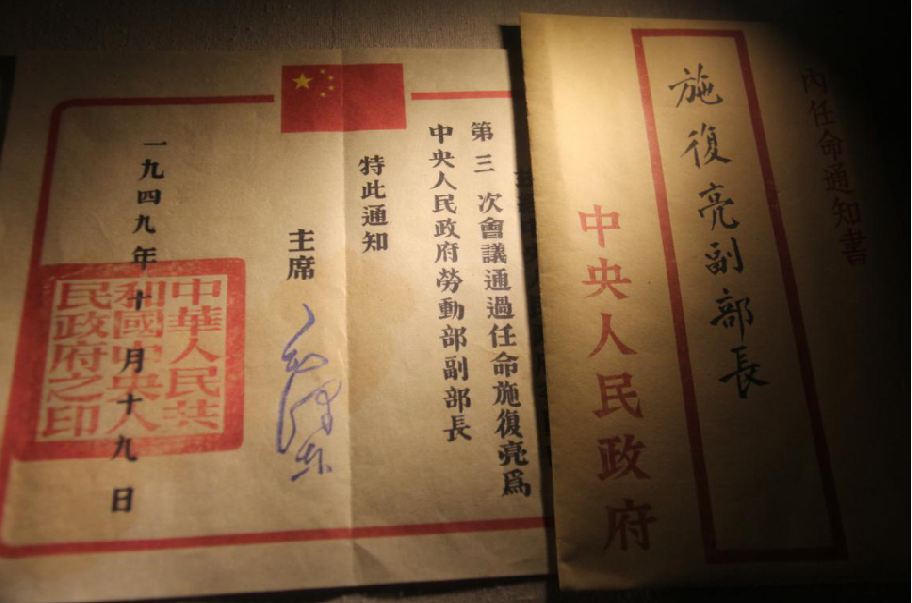 內任命通知書
施復亮副部長
中央人民政府
第三次會議通過任命施復亮爲
中央人民政府勞動部副部長
特此通知
主席
一九四九年十月十九日
中華人民共
和國中央人
民政府之印